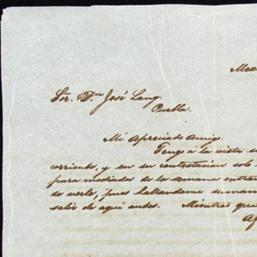 Mex
Sor. Dn. José Lang
Puebla.
Mi Apreciado Amigo.
Tengo á la vista s
corriente, y en su contestacion solo
para mediados de la semana entra
de verlo, pues hallandome sumam
salir de aqui antes. Mientras que